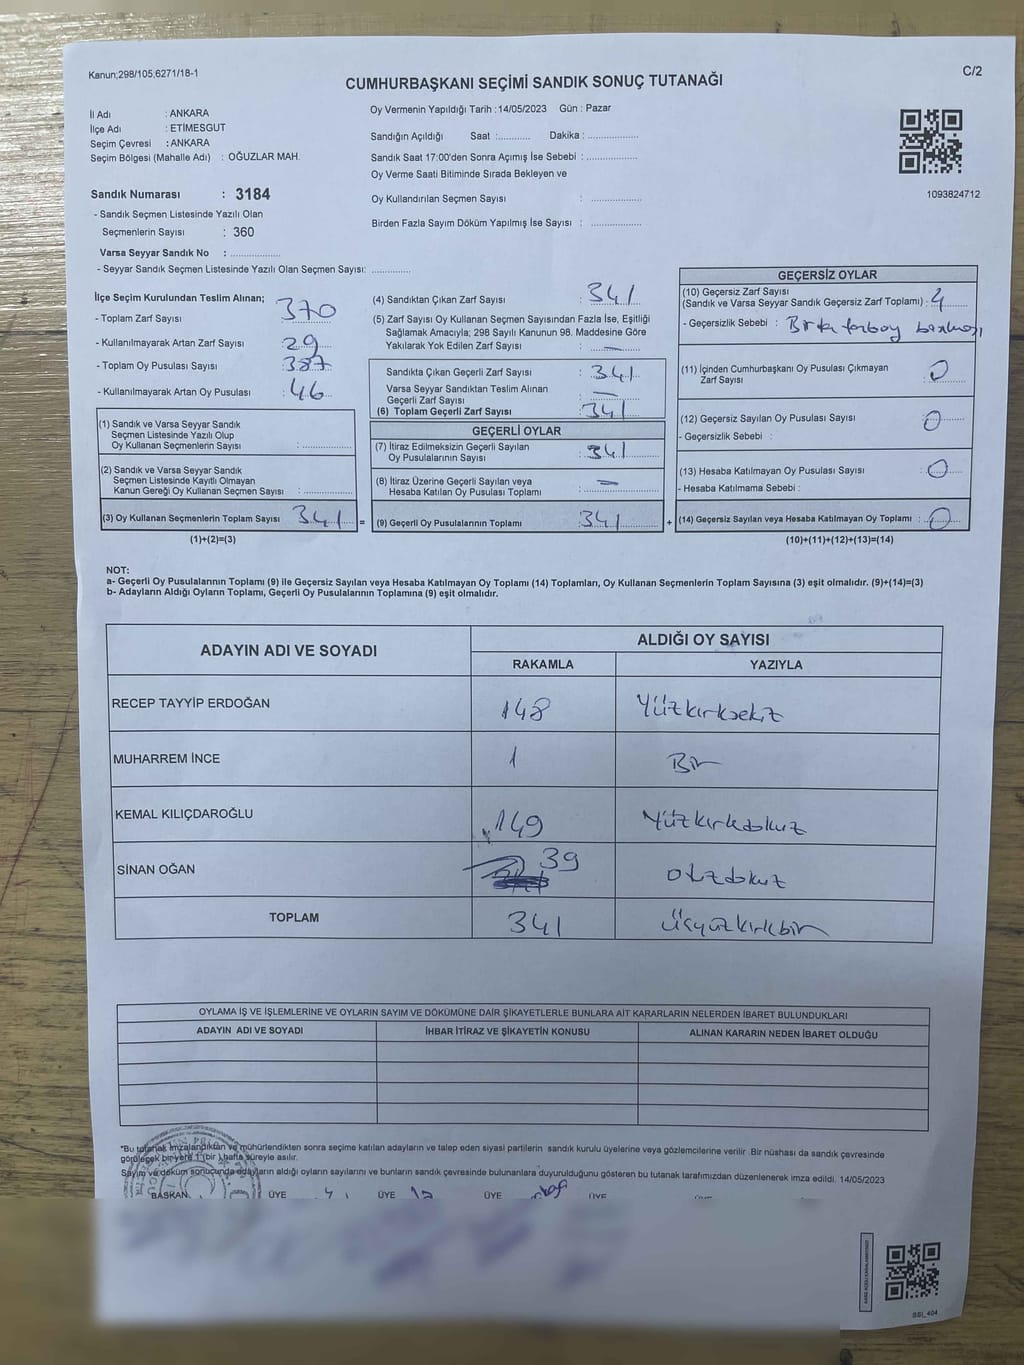 Kanun;298/105;6271/18-1
C/2
CUMHURBAŞKANI SEÇİMİ SANDIK SONUÇ TUTANAĞI
İl Adı : ANKARA
İlçe Adı : ETİMESGUT
Seçim Çevresi : ANKARA
Seçim Bölgesi (Mahalle Adı) : OĞUZLAR MAH.
Oy Vermenin Yapıldığı Tarih :14/05/2023 Gün : Pazar
Sandığın Açıldığı Saat :........... Dakika : .................
Sandık Saat 17:00'den Sonra Açımış İse Sebebi : .................
Oy Verme Saati Bitiminde Sırada Bekleyen ve
Oy Kullandırılan Seçmen Sayısı : .................
Birden Fazla Sayım Döküm Yapılmış İse Sayısı : .................
1093824712
Sandık Numarası : 3184
- Sandık Seçmen Listesinde Yazılı Olan
Seçmenlerin Sayısı : 360
Varsa Seyyar Sandık No : .................
- Seyyar Sandık Seçmen Listesinde Yazılı Olan Seçmen Sayısı: .............
İlçe Seçim Kurulundan Teslim Alınan;
- Toplam Zarf Sayısı : 370
- Kullanılmayarak Artan Zarf Sayısı : 29
- Toplam Oy Pusulası Sayısı : 387
- Kullanılmayarak Artan Oy Pusulası : 46
(1) Sandık ve Varsa Seyyar Sandık
Seçmen Listesinde Yazılı Olup
Oy Kullanan Seçmenlerin Sayısı : .................
(2) Sandık ve Varsa Seyyar Sandık
Seçmen Listesinde Kayıtlı Olmayan
Kanun Gereği Oy Kullanan Seçmen Sayısı : .................
(3) Oy Kullanan Seçmenlerin Toplam Sayısı 341 =
(1)+(2)=(3)
(4) Sandıktan Çıkan Zarf Sayısı : 341
(5) Zarf Sayısı Oy Kullanan Seçmen Sayısından Fazla İse, Eşitliği
Sağlamak Amacıyla; 298 Sayılı Kanunun 98. Maddesine Göre
Yakılarak Yok Edilen Zarf Sayısı : —
Sandıkta Çıkan Geçerli Zarf Sayısı : 341
Varsa Seyyar Sandıktan Teslim Alınan
Geçerli Zarf Sayısı : —
(6) Toplam Geçerli Zarf Sayısı : 341
GEÇERLİ OYLAR
(7) İtiraz Edilmeksizin Geçerli Sayılan
Oy Pusulalarının Sayısı : 341
(8) İtiraz Üzerine Geçerli Sayılan veya
Hesaba Katılan Oy Pusulası Toplamı : —
(9) Geçerli Oy Pusulalarının Toplamı : 341 +
GEÇERSİZ OYLAR
(10) Geçersiz Zarf Sayısı
(Sandık ve Varsa Seyyar Sandık Geçersiz Zarf Toplamı) : 4
- Geçersizlik Sebebi :
(11) İçinden Cumhurbaşkanı Oy Pusulası Çıkmayan
Zarf Sayısı : 0
(12) Geçersiz Sayılan Oy Pusulası Sayısı : 0
- Geçersizlik Sebebi :
(13) Hesaba Katılmayan Oy Pusulası Sayısı : 0
- Hesaba Katılmama Sebebi :
(14) Geçersiz Sayılan veya Hesaba Katılmayan Oy Toplamı : 0
(10)+(11)+(12)+(13)=(14)
NOT:
a- Geçerli Oy Pusulalarının Toplamı (9) ile Geçersiz Sayılan veya Hesaba Katılmayan Oy Toplamı (14) Toplamları, Oy Kullanan Seçmenlerin Toplam Sayısına (3) eşit olmalıdır. (9)+(14)=(3)
b- Adayların Aldığı Oyların Toplamı, Geçerli Oy Pusulalarının Toplamına (9) eşit olmalıdır.
ADAYIN ADI VE SOYADI
ALDIĞI OY SAYISI
RAKAMLA YAZIYLA
RECEP TAYYİP ERDOĞAN 148 Yüzkırksekiz
MUHARREM İNCE 1 Bir
KEMAL KILIÇDAROĞLU 149 Yüzkırkdokuz
SİNAN OĞAN 39 otuzdokuz
TOPLAM 341 Üçyüzkırkbir
OYLAMA İŞ VE İŞLEMLERİNE VE OYLARIN SAYIM VE DÖKÜMÜNE DAİR ŞİKAYETLERLE BUNLARA AİT KARARLARIN NELERDEN İBARET BULUNDUKLARI
ADAYIN ADI VE SOYADI İHBAR İTİRAZ VE ŞİKAYETİN KONUSU ALINAN KARARIN NEDEN İBARET OLDUĞU
*Bu tutanak imzalandıktan ve mühürlendikten sonra seçime katılan adayların ve talep eden siyasi partilerin sandık kurulu üyelerine veya gözlemcilerine verilir. Bir nüshası da sandık çevresinde
görülecek bir yere 1 (bir) hafta süreyle asılır.
Sayım ve döküm sonucunda adayların aldığı oyların sayılarını ve bunların sandık çevresinde bulunanlara duyurulduğunu gösteren bu tutanak tarafımızdan düzenlenerek imza edildi. 14/05/2023
BAŞKAN ÜYE ÜYE ÜYE ÜYE
SSI_404